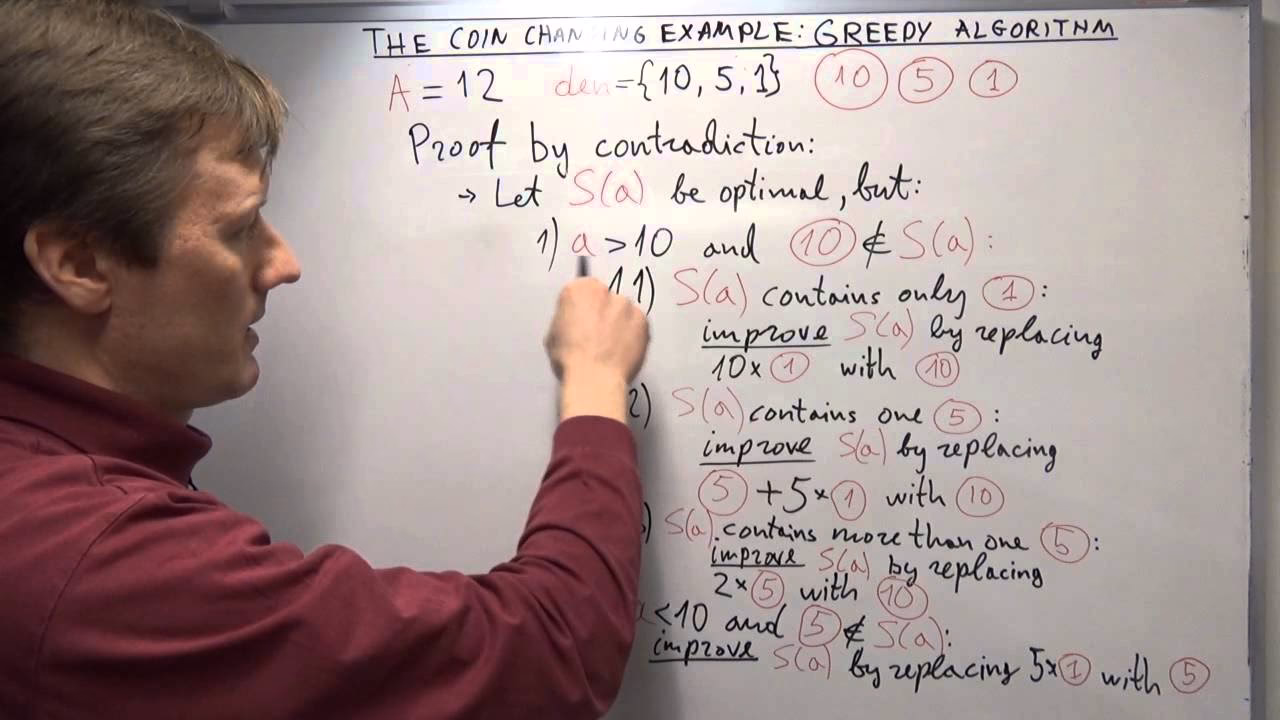 THE COIN CHANGING EXAMPLE: GREEDY ALGORITHM
A = 12 den = {10, 5, 1} 10 5 1
Proof by contradiction:
→ Let S(a) be optimal, but:
1) a > 10 and 10 ∉ S(a):
1.1) S(a) contains only 1:
improve S(a) by replacing
10× 1 with 10
2) S(a) contains one 5:
improve S(a) by replacing
5 + 5× 1 with 10
) S(a) contains more than one 5:
improve S(a) by replacing
2× 5 with 10
<10 and 5 ∉ S(a):
improve S(a) by replacing 5× 1 with 5